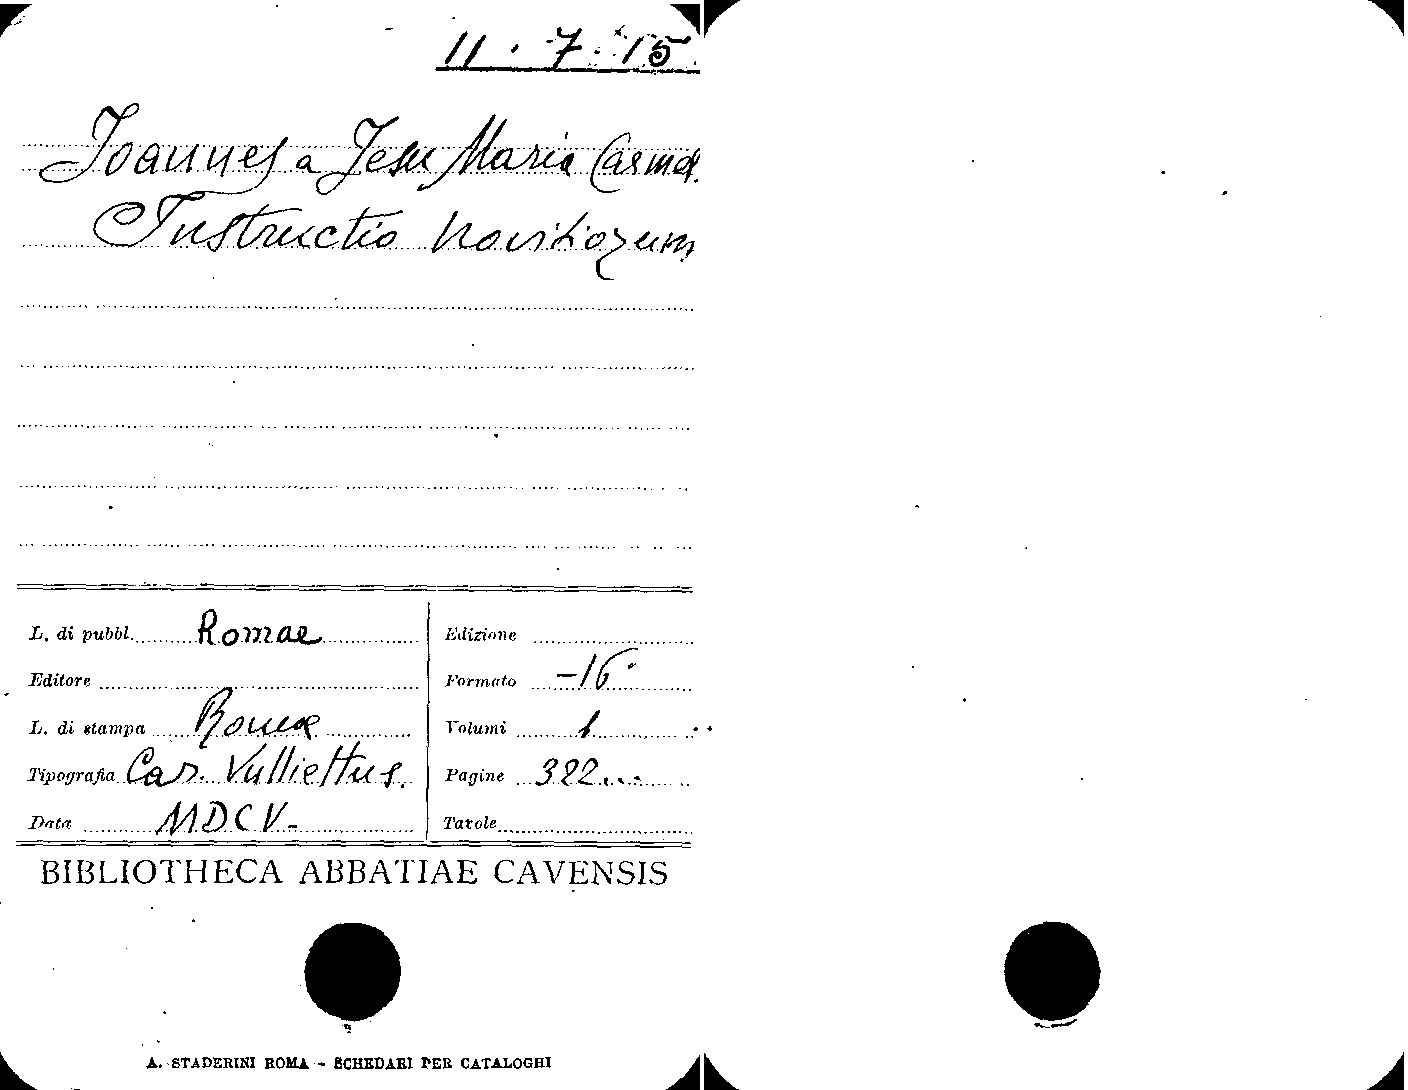 11 . 7 . 15.
Joannes a Jesu Maria Carmel.
Instructio Novitiorum
L. di pubbl. Romae
Edizione
Editore
Formato -16°
L. di stampa Romae
Volumi 1
Tipografia Car. Vulliettus.
Pagine 322...
Data MDCV-
Tavole
BIBLIOTHECA ABBATIAE CAVENSIS
A. STADERINI ROMA - SCHEDARI PER CATALOGHI